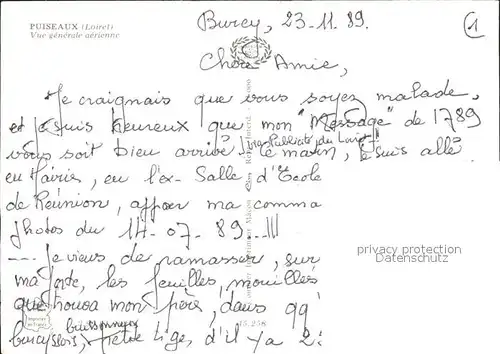 PUISEAUX (Loiret)
Vue générale aérienne
Burcy, 23-11.89.
1
Chère Amie,
Je craignais que vous soyez malade,
et je suis heureux que mon "Message" de 1789
vous soit bien arrivé. (via Publicité du Loiret)
Ce matin, je suis allé
en Mairie, en l'ex-Salle d'École
de Réunion, ma comma
photos du 14-07-89...!!!
privacy protection
Datenschutz
--- Je viens de ramasser, sur
ma les feuilles mouillés
que trouva mon père, dans 99
buissonneux
petite tige, d'il y a 2: